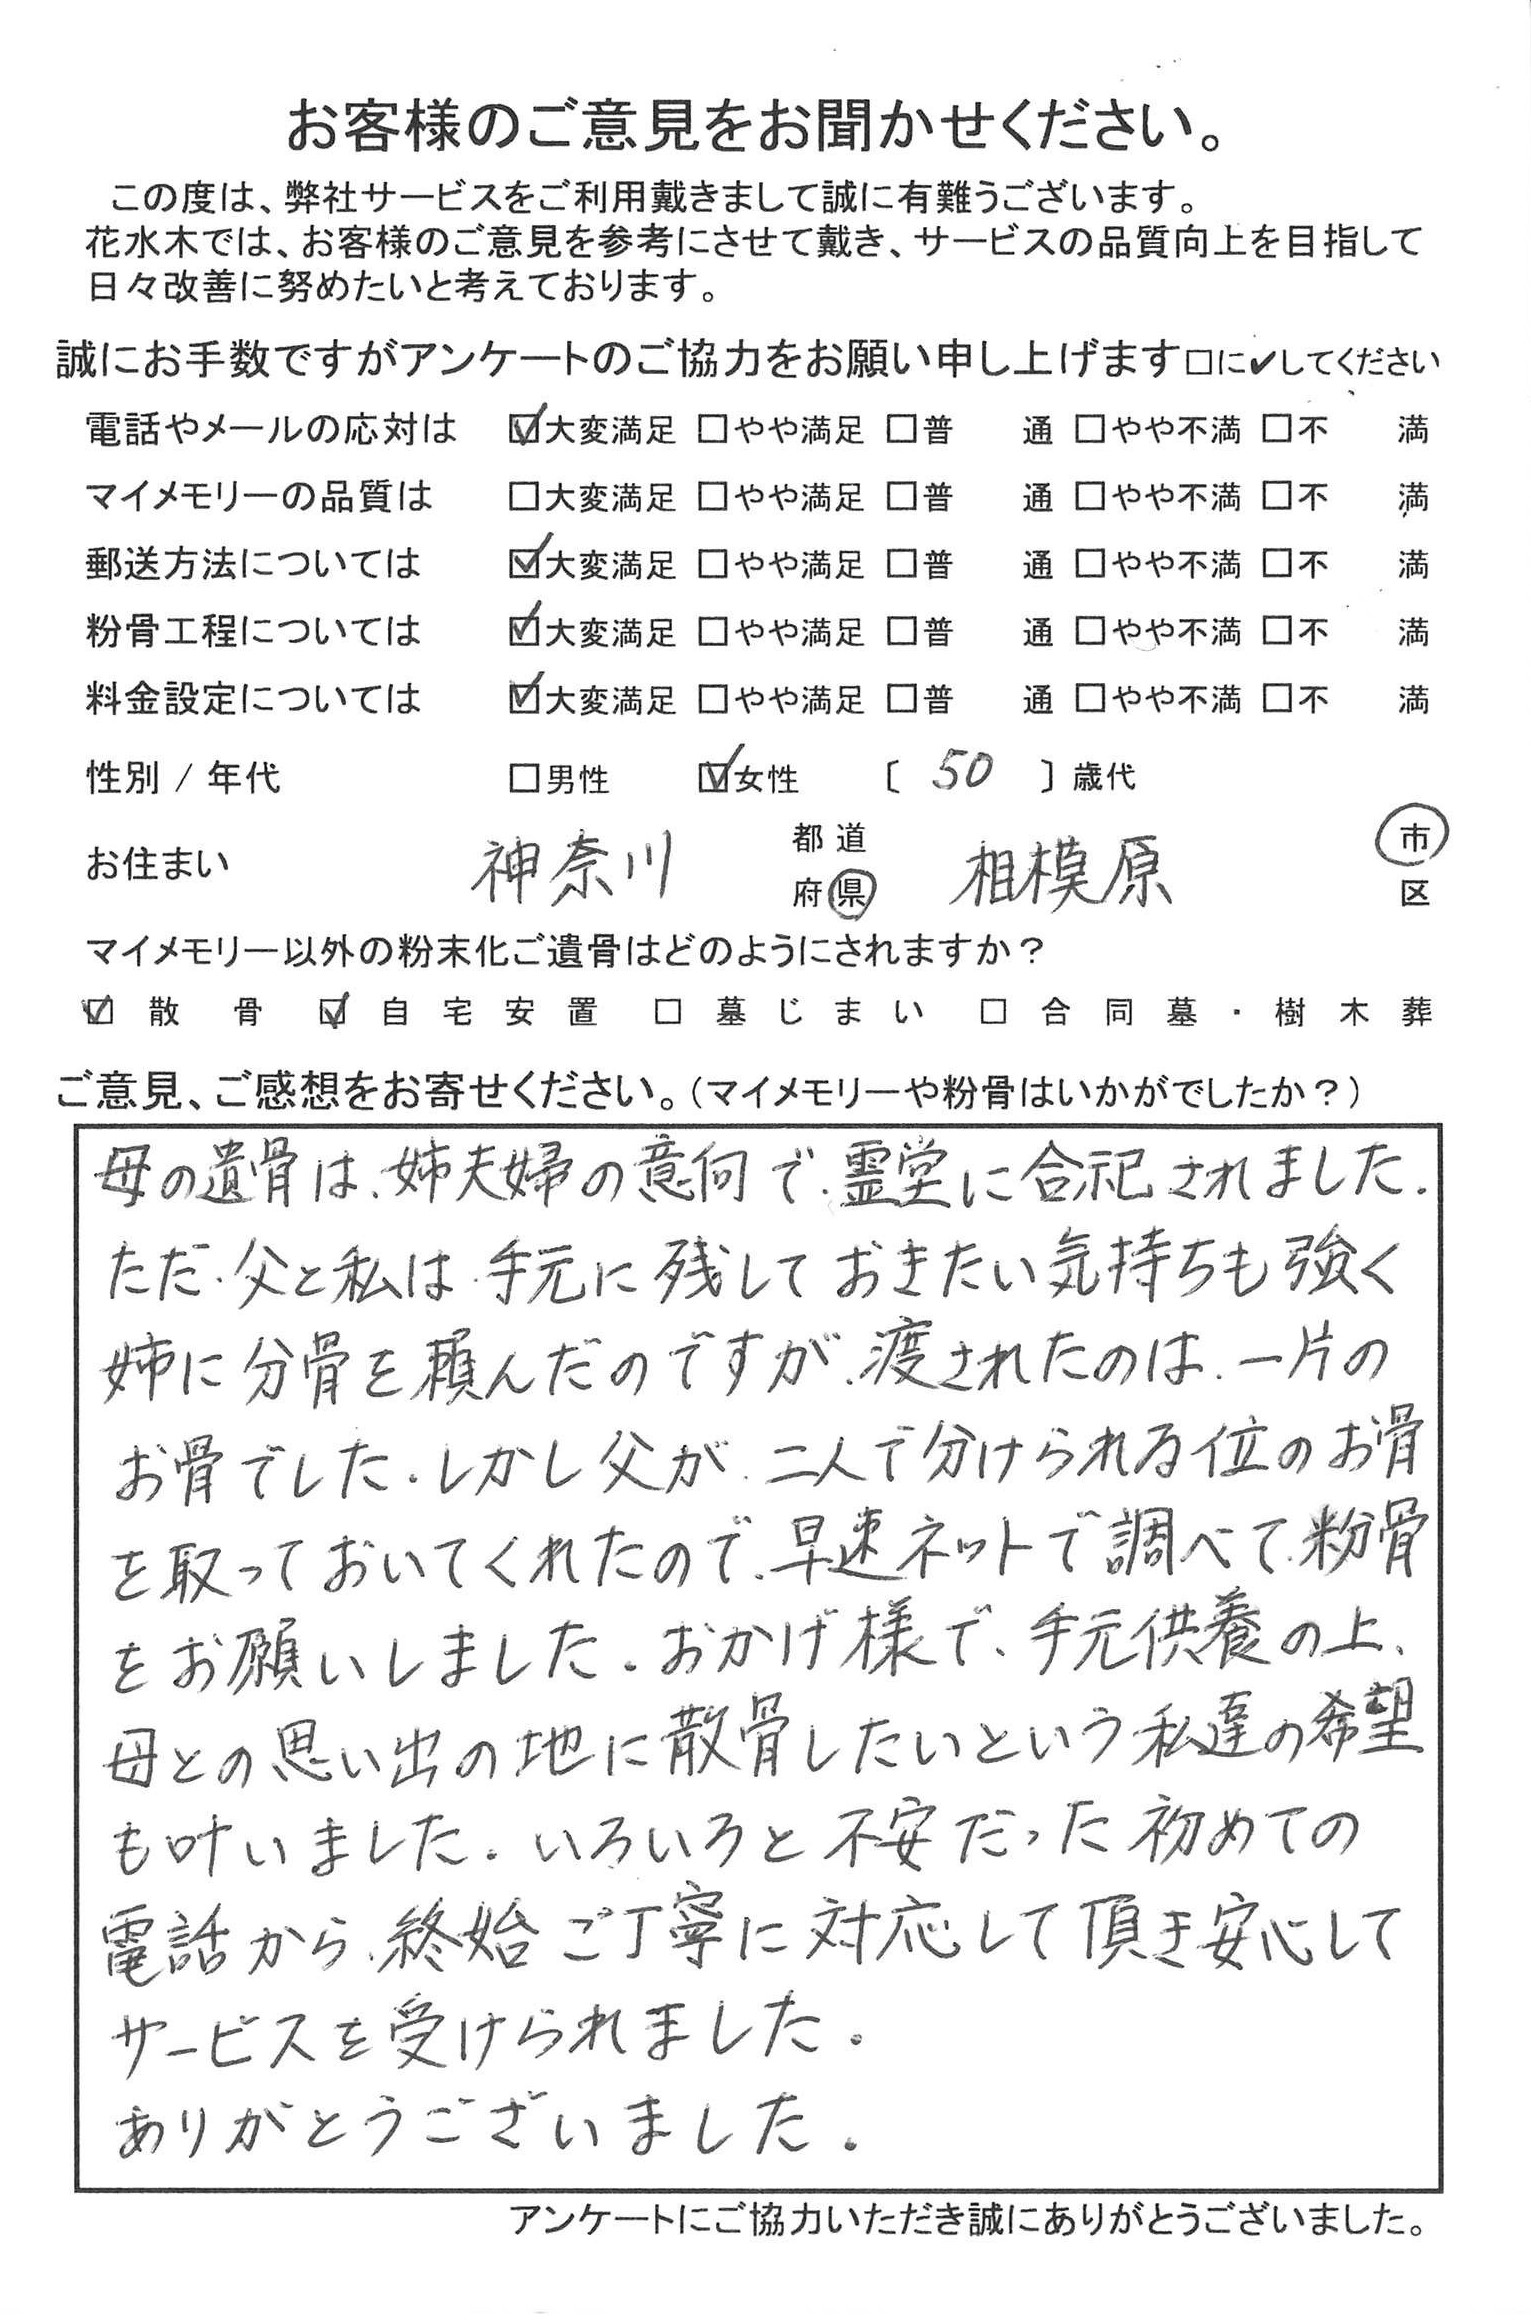 お客様のご意見をお聞かせください。
この度は、弊社サービスをご利用戴きまして誠に有難うございます。
花水木では、お客様のご意見を参考にさせて戴き、サービスの品質向上を目指して
日々改善に努めたいと考えております。
誠にお手数ですがアンケートのご協力をお願い申し上げます□に✔してください
電話やメールの応対は ☑大変満足 □やや満足 □普 通 □やや不満 □不 満
マイメモリーの品質は □大変満足 □やや満足 □普 通 □やや不満 □不 満
郵送方法については ☑大変満足 □やや満足 □普 通 □やや不満 □不 満
粉骨工程については ☑大変満足 □やや満足 □普 通 □やや不満 □不 満
料金設定については ☑大変満足 □やや満足 □普 通 □やや不満 □不 満
性別 / 年代 □男性 ☑女性 〔 50 〕歳代
お住まい 神奈川 都道府県 相模原 市区
マイメモリー以外の粉末化ご遺骨はどのようにされますか?
☑ 散骨 ☑ 自宅安置 □ 墓じまい □ 合同墓・樹木葬
ご意見、ご感想をお寄せください。(マイメモリーや粉骨はいかがでしたか?)
母の遺骨は、姉夫婦の意向で、霊堂に合祀されました.
ただ、父と私は、手元に残しておきたい気持ちも強く
姉に分骨を頼んだのですが、渡されたのは、一片の
お骨でした.しかし父が、二人で分けられる位のお骨
を取っておいてくれたので、早速ネットで調べて、粉骨
をお願いしました.おかげ様で、手元供養の上、
母との思い出の地に散骨したいという私達の希望
も叶いました.いろいろと不安だった初めての
電話から、終始ご丁寧に対応して頂き安心して
サービスを受けられました.
ありがとうございました.
アンケートにご協力いただき誠にありがとうございました。